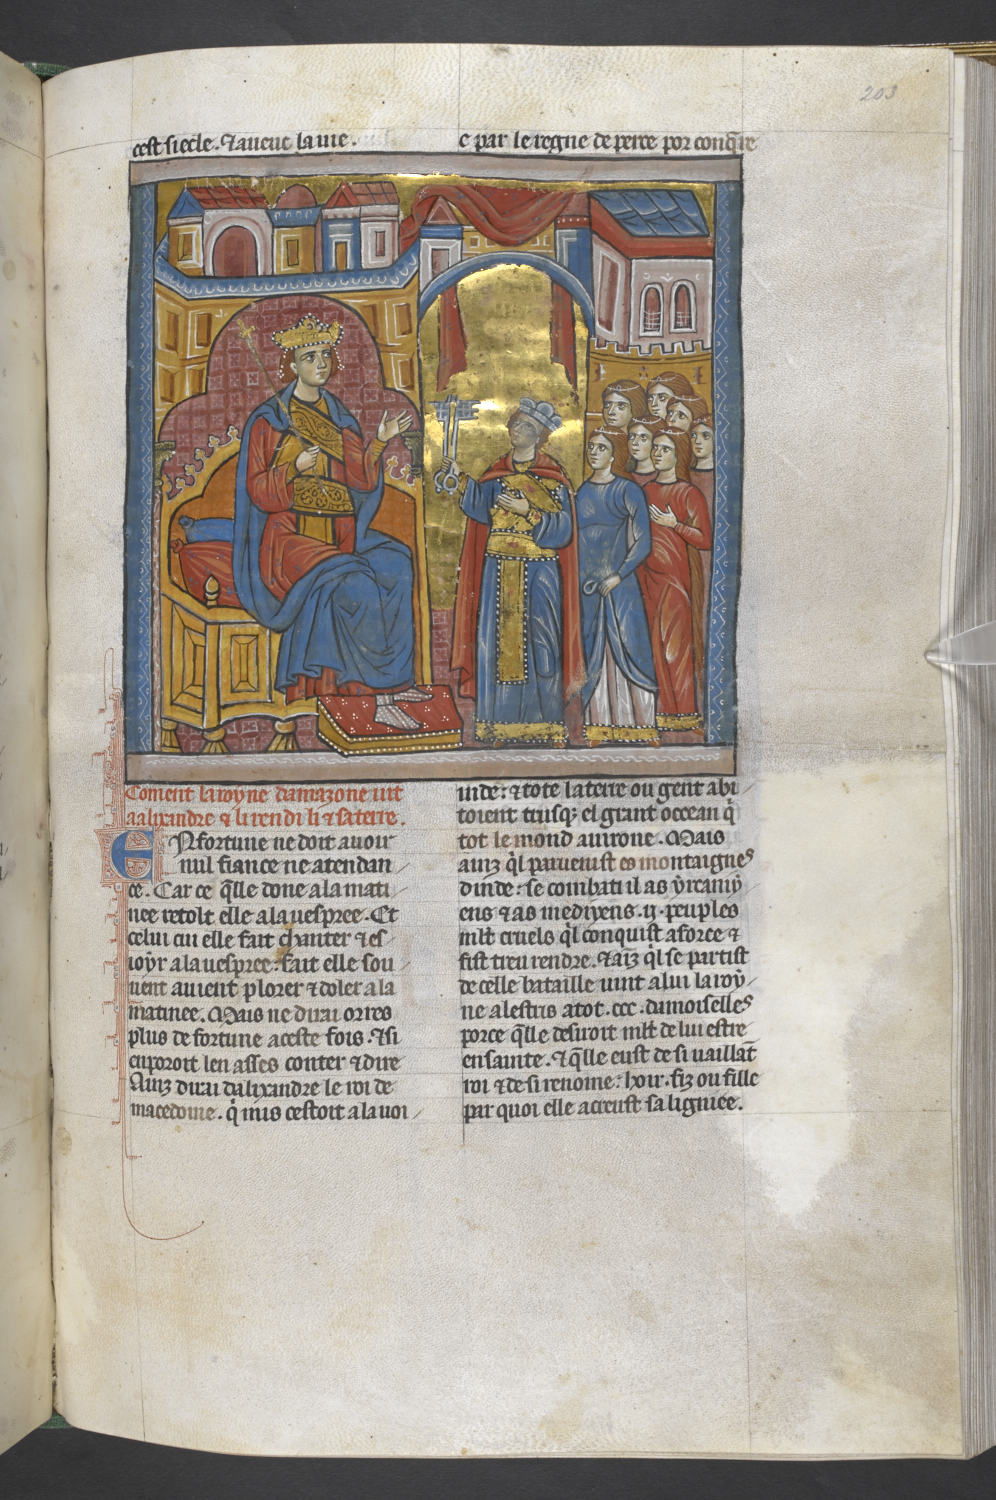 203
cest siecle. ⁊ aueuc la uie.
Coment la royne damazone uit
a alixandre ⁊ li rendi li ⁊ sa terre.
EN fortune ne doit auoir
nul fiance ne atendan
ce. Car ce q̃lle done a la mati
nee retolt elle a la uespree. Et
celui cui elle fait chanter ⁊ es
ioyr a la uespree: fait elle sou
uent auient plorer ⁊ doler a la
matinee. Mais ne dirai or res
plus de fortune a ceste fois. ⁊ si
en poroit len asses conter ⁊ dire
Ainz dirai dalixandre le roi de
macedoine. q̃ mis cestoit a la uoi
e par le regne de perce por conq̃re
inde: ⁊ tote la terre ou gent abi
toient trusq̃ el grant occean q̃
tot le mond auirone. Mais
ainz q̃l paruenist es montaignes
dinde: se combati il as yrcaniy
ens ⁊ as mediyens. ij. peuples
mlt cruels q̃l conquist a force ⁊
fist treu rendre. ⁊ aiz q̃l se partist
de celle bataille uint a lui la roy
ne alestris a tot .ccc. damoiselles
por ce q̃lle desiroit mlt de lui estre
ensainte. ⁊ q̃lle eust de si uaillãt
roi ⁊ de si renome: hoir. fiz ou fille
par quoi elle acreust sa ligniee.